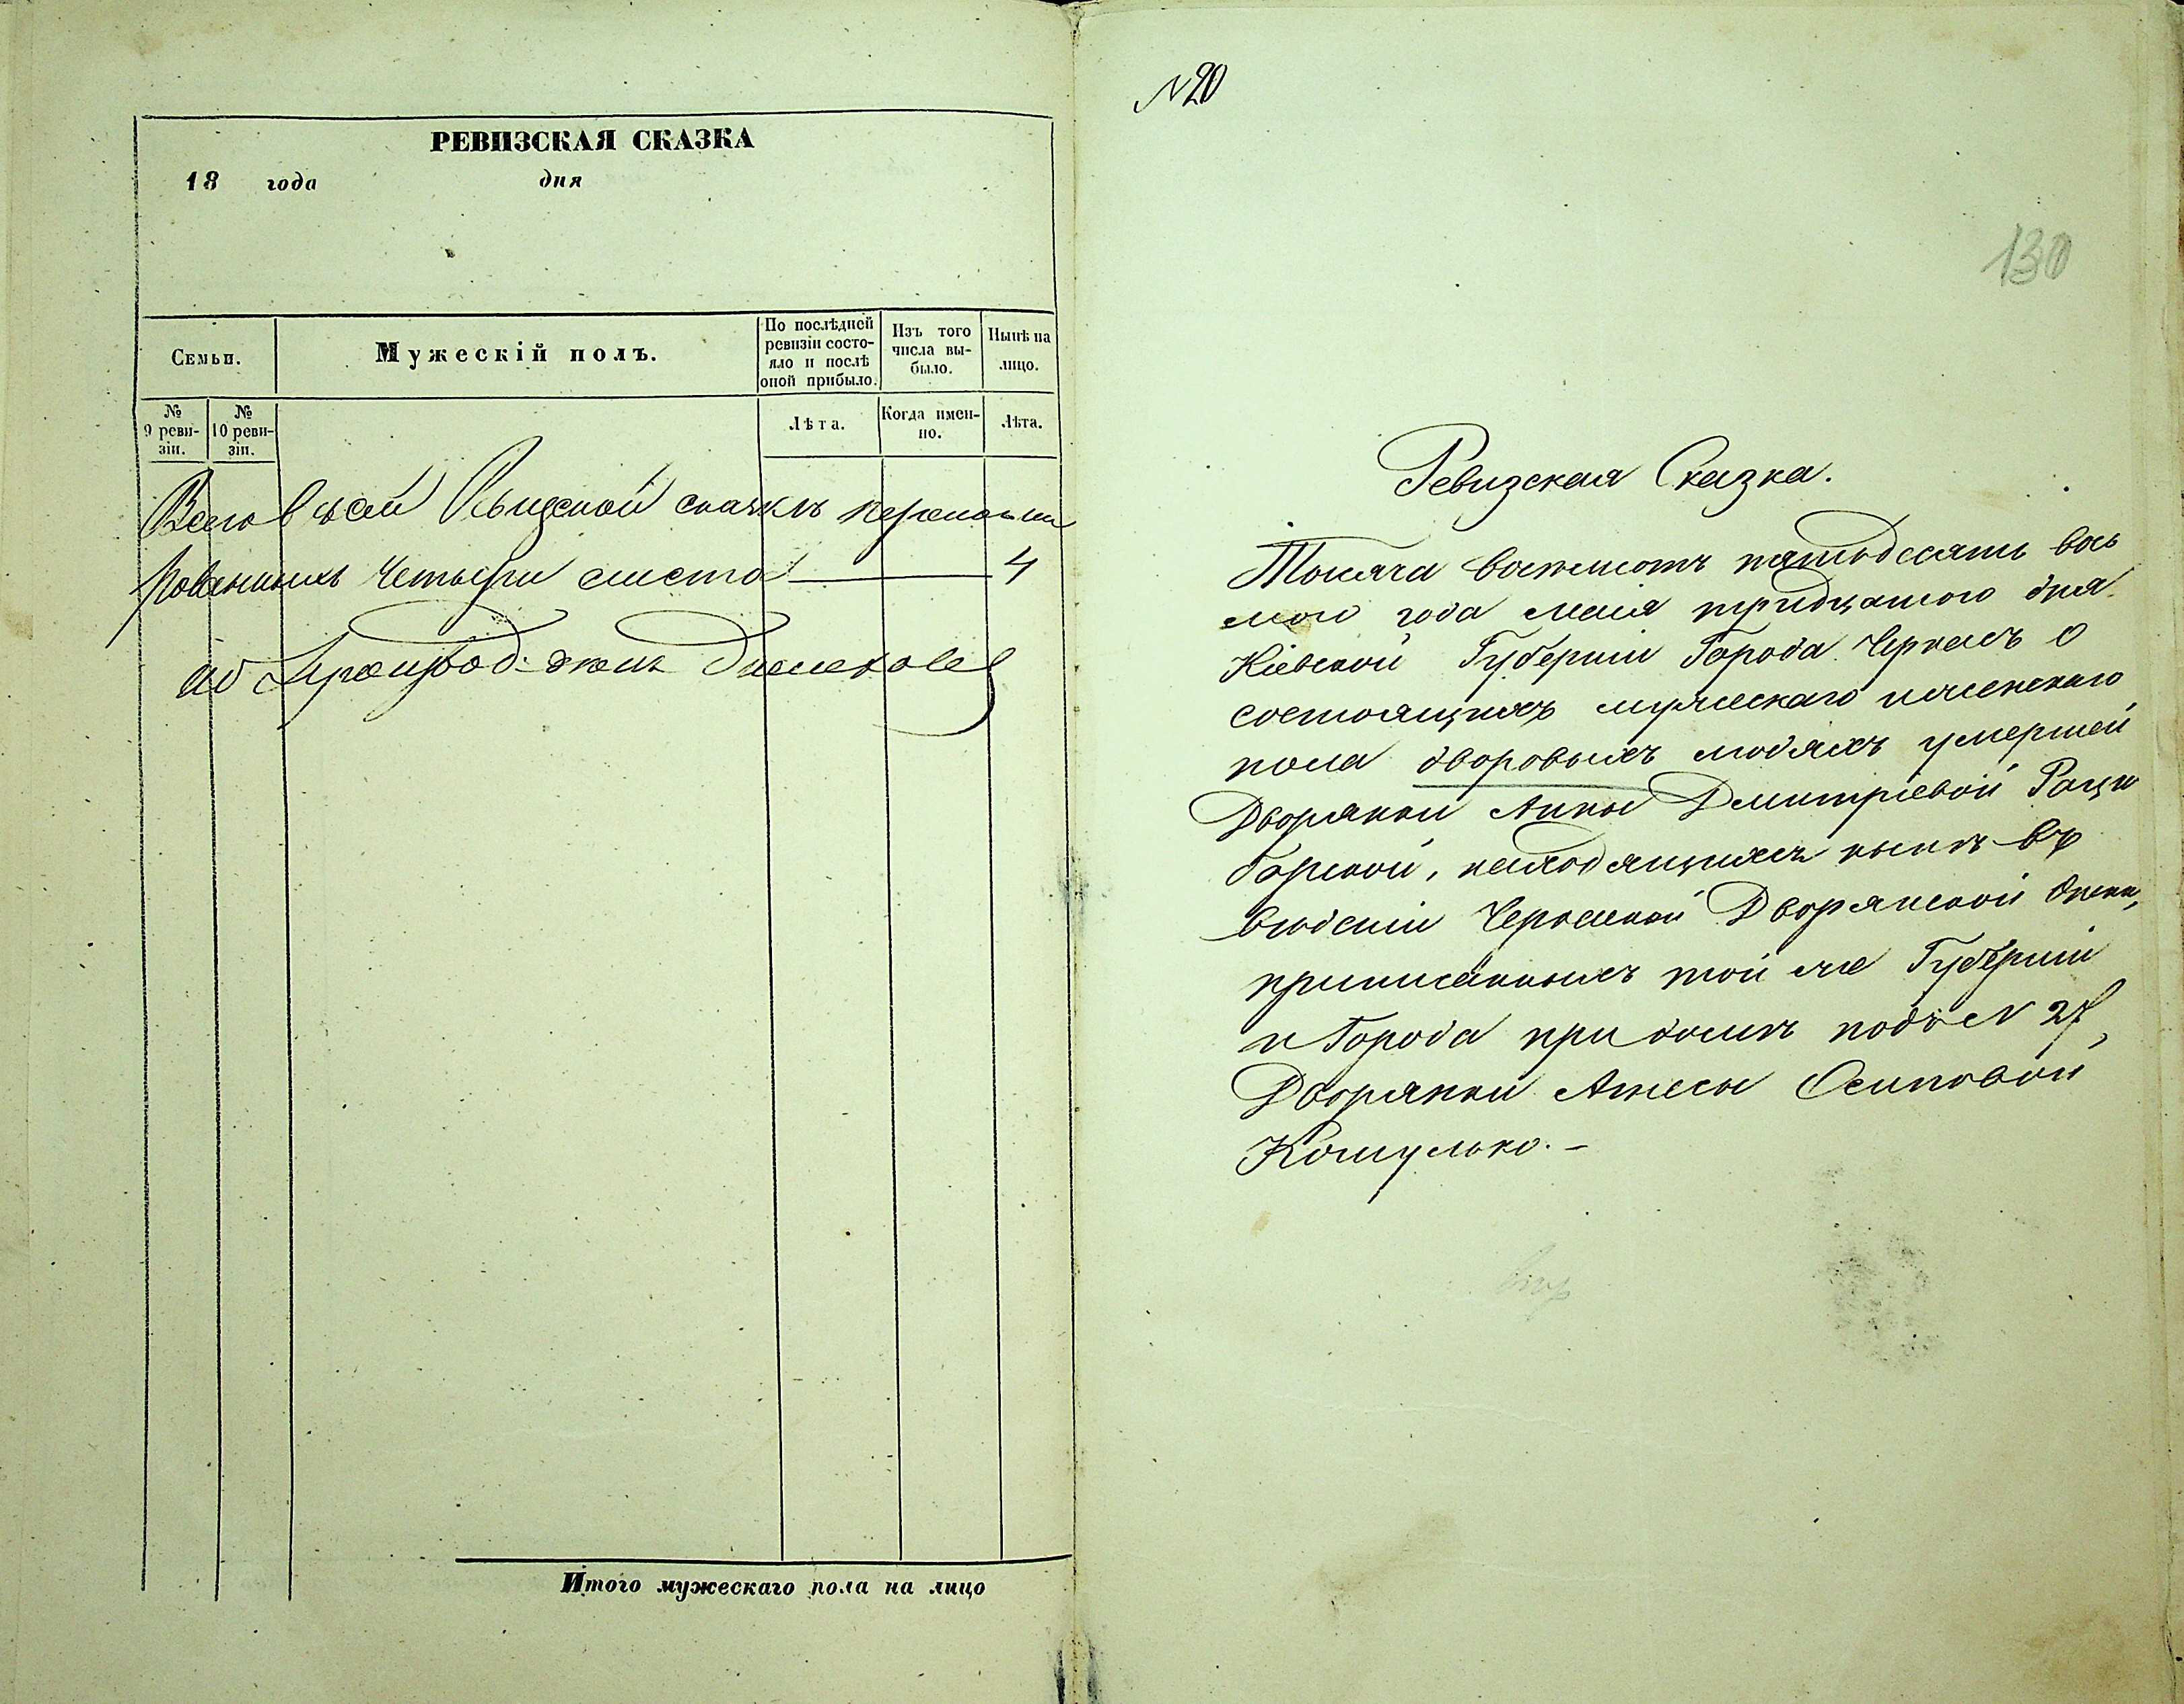 РЕВИЗСКАЯ СКАЗКА
18 года дня
Семьи.
Мужескій полъ.
По послѣдней ревизіи состо-
яло и послѣ
оной прибыло.
Изъ того
числа вы-
было.
Нынѣ на
лицо.
№
9 реви-
зіи.
№
10 реви-
зіи.
Лѣта.
Когда имен-
но.
Лѣта.
Всего в сей Ревизской сказкѣ перенуме
рованныхъ четыри листа — 4
Итого мужескаго пола на лицо
№20
130
Ревизская Сказка.
Тысяча восемьсотъ пятьдесятъ вось
мого года маія тридцатого дня
Кіевской Губерніи Города Черкасъ о
состоящихъ мужескаго и женскаго
пола дворовыхъ людяхъ умершей
Дворянки Анны Дмитріевой Раци
борской, находящихся нынѣ въ
вѣденіи Черкаской Дворянской Опеки,
приписанныхъ той же Губерніи
и Города при домѣ подъ N 27,
Дворянки Агнесы Осиповой
Кошулько.-